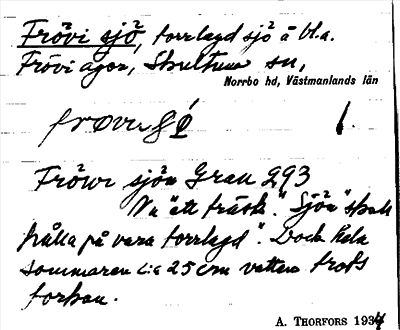 Frövi sjö, torrlagd sjö å bl.a.
Frövi ägor, Skultuna sn,
Norrbo hd, Västmanlands län
1.
Fröwi sjön Grau 293
Nu "ett träsk". "Sjön" skall
hålla på vara torrlagd". Dock hela
sommaren c:a 25 cm vatten trots
torkan.
A. THORFORS 1934